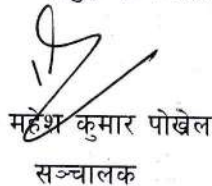 महेश कुमार पोखेल
सञ्चालक